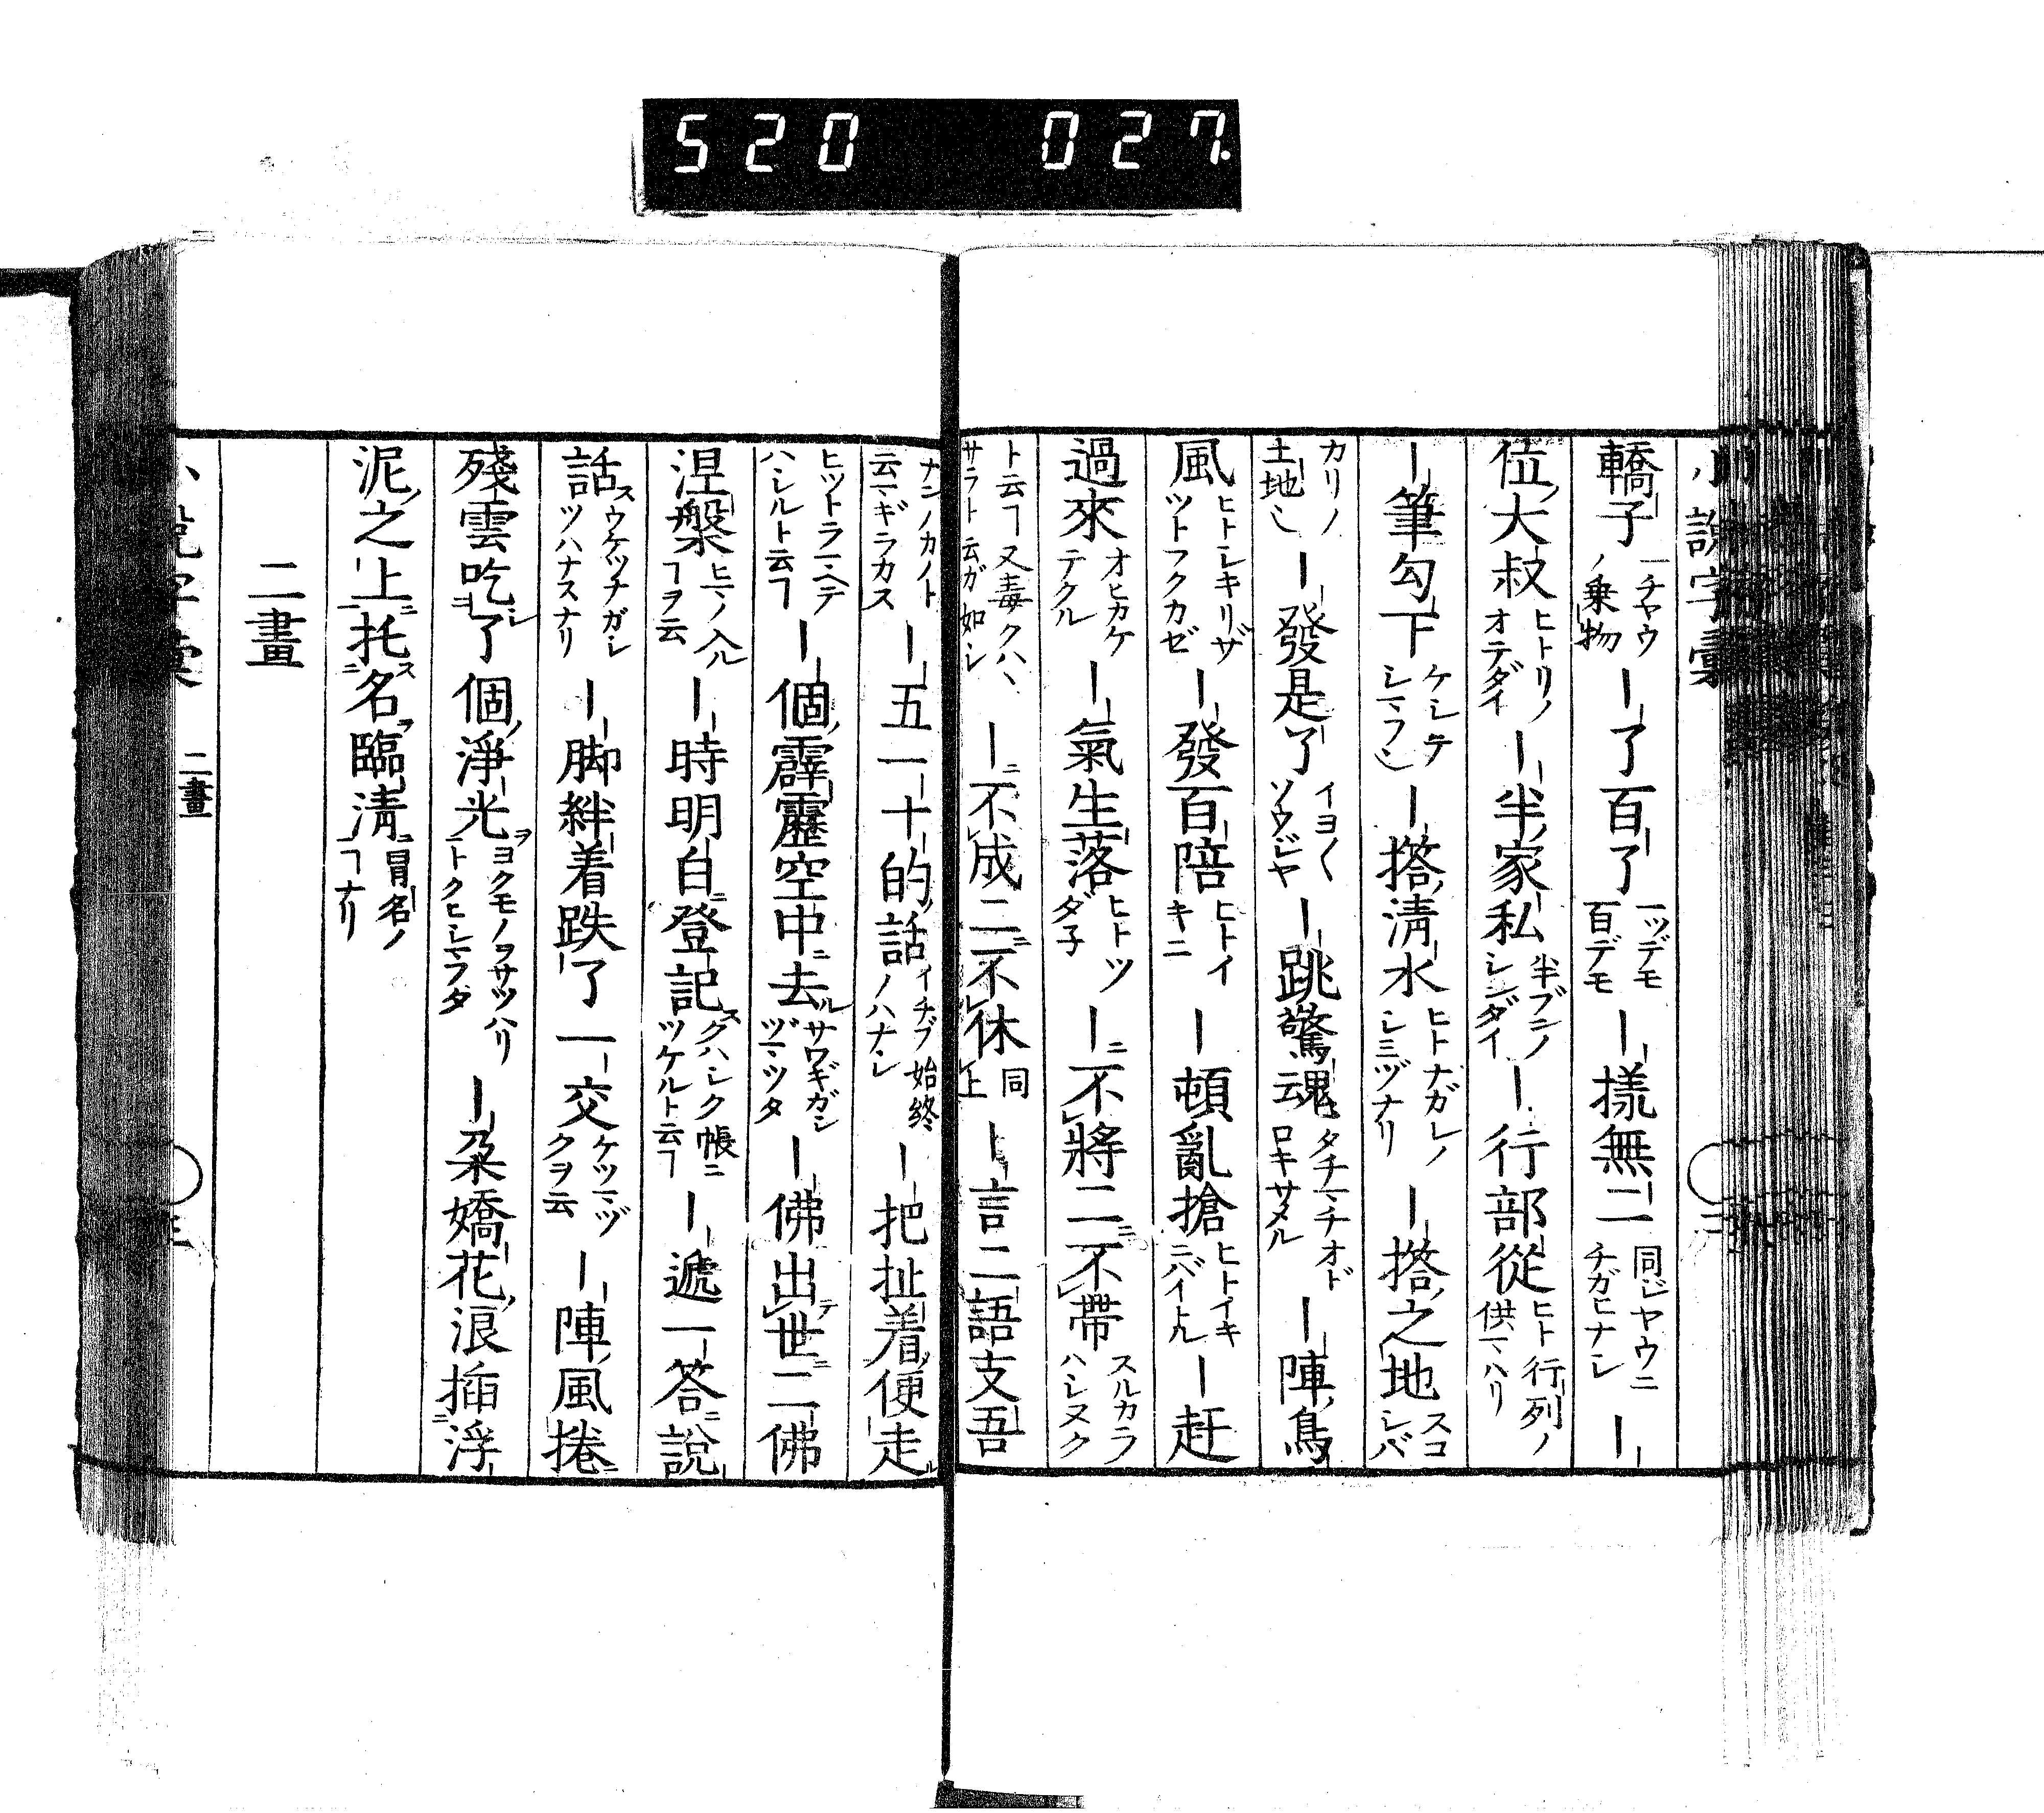 520 027.
小說字彙
轎子 一チヤウノ乗物 ー了百了 一ツデモ百デモ ー㨾無二 同ジヤウニチガヒナシ ー
位大叔 ヒトリノオテダイ ー半家私 半ブンノシンダイ ー行部從 ヒト行列ノ供マハリ
ー筆勾下 ケシテシマフ ー搭清水 ヒトナガレノシミヅナリ ー搭之地 スコシバ
カリノ土地 ー發是了 イヨ〱ソウジヤ ー跳驚魂 タチマチオドロキサメル ー陣鳥
風 ヒトシキリザツトフクカゼ ー發百陪 ヒトイキニ ー頓亂搶 ヒトイキニバイトル ー赶
過來 オヒカケテクル ー氣生落 ヒトツダ子 ー不將二不帶 スルカラハシヌク
ト云ヿ又毒クハヽサラト云ガ如シ ー不成二不休 同上 ー言二語支吾
ナンノカノト云マギラカス ー五一十的話 イチブ始終ノハナシ ー把扯着便走
ヒツトラマヘテハシルト云ヿ ー個霹靂空中去 サワギガシヅマツタ ー佛出世二佛
涅槃 ヒマノ入ルヿヲ云 ー時明白登記 クハシク帳ニツケルト云ヿ ー遞一答説
話 ウケツナガシツハナスナリ ー脚絆着跌了一交 ケツマヅクヲ云 ー陣風捲
殘雲吃了個淨光 ヨクモノヲサツハリトクヒシマフタ ー朶嬌花浪插浮
泥之上托名臨淸 冒名ノヿナリ
二畫
二畫